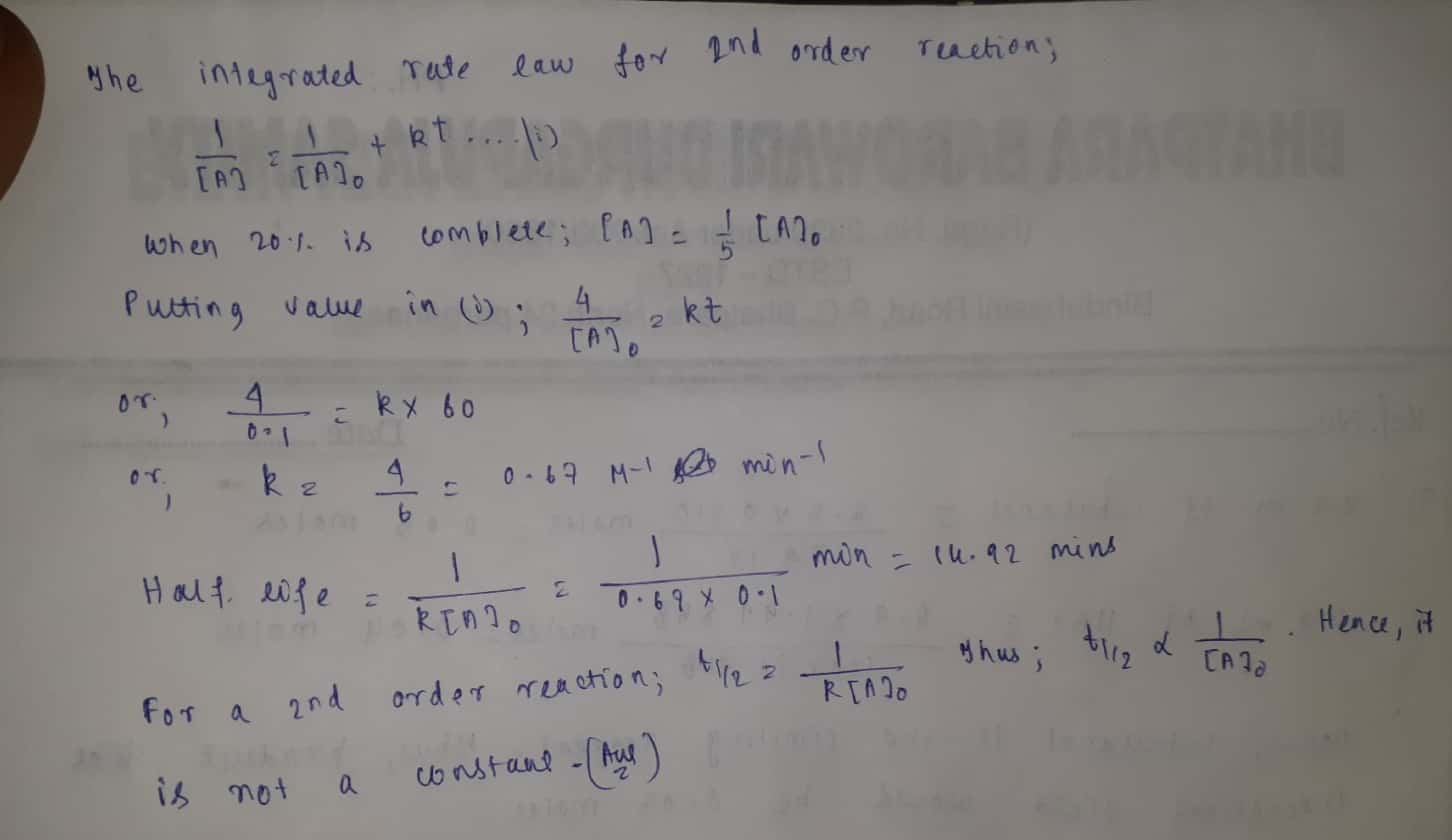 The integrated rate law for 2nd order reaction;
1/[A] = 1/[A]₀ + kt ....(i)
when 20% is complete; [A] = 1/5 [A]₀
Putting value in (i); 4/[A]₀ = kt
or, 4/0.1 = k x 60
or, k = 4/6 = 0.67 M-1 min-1
Half life = 1/k[A]₀ = 1/0.67 x 0.1 min = 14.92 mins
For a 2nd order reaction; t1/2 = 1/k[A]₀ Thus; t1/2 ∝ 1/[A]₀. Hence, it
is not a constant - (Ans)